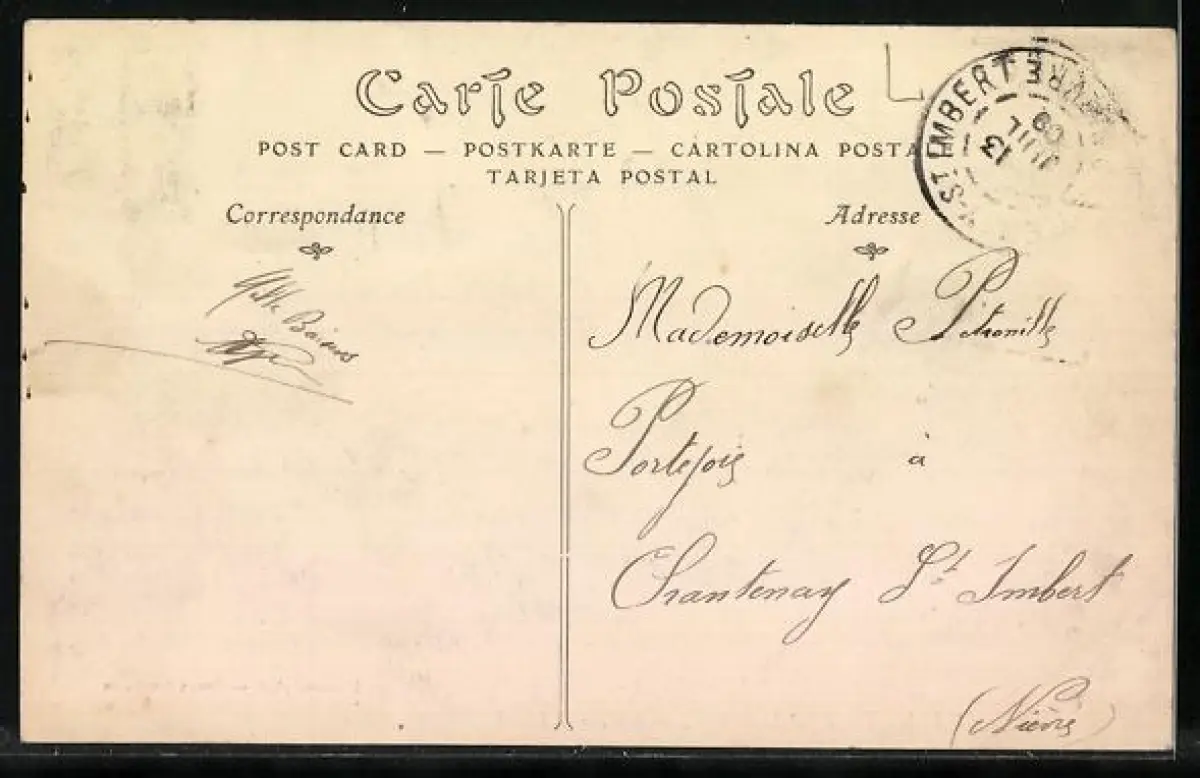 Carte Postale
POST CARD — POSTKARTE — CARTOLINA POSTA
TARJETA POSTAL
Correspondance
Adresse
-ST IMBERT
13
JUIL
09
Mille Baisers
Mademoiselle Pétronille
Portejoie à
Chantenay St Imbert
(Nièvre)